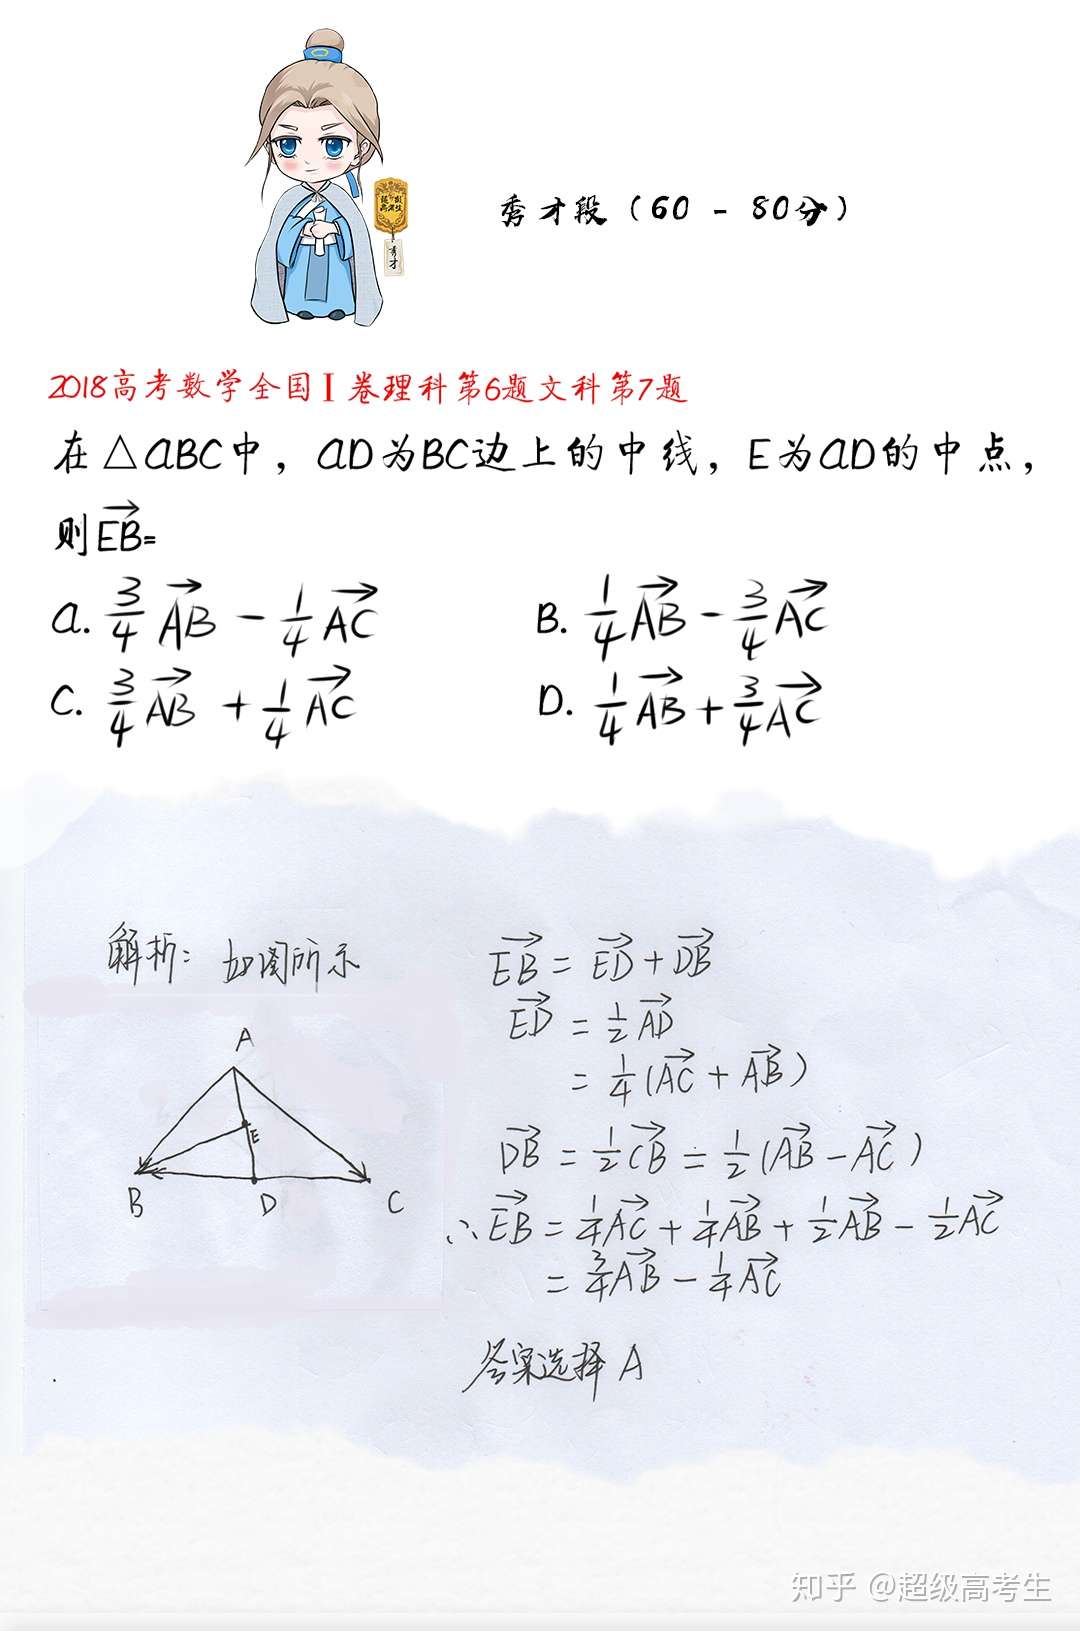 秀才段（60 - 80分）
秀才
2018高考数学全国Ⅰ卷理科第6题文科第7题
在△ABC中，AD为BC边上的中线，E为AD的中点，
则EB→=
A. 3/4 AB→ - 1/4 AC→
B. 1/4 AB→ - 3/4 AC→
C. 3/4 AB→ + 1/4 AC→
D. 1/4 AB→ + 3/4 AC→
解析：如图所示
A
E
B
D
C
EB→ = ED→ + DB→
ED→ = 1/2 AD→
= 1/4 (AC→ + AB→)
DB→ = 1/2 CB→ = 1/2 (AB→ - AC→)
∴ EB→ = 1/4 AC→ + 1/4 AB→ + 1/2 AB→ - 1/2 AC→
= 3/4 AB→ - 1/4 AC→
答案选择 A
知乎 @超级高考生